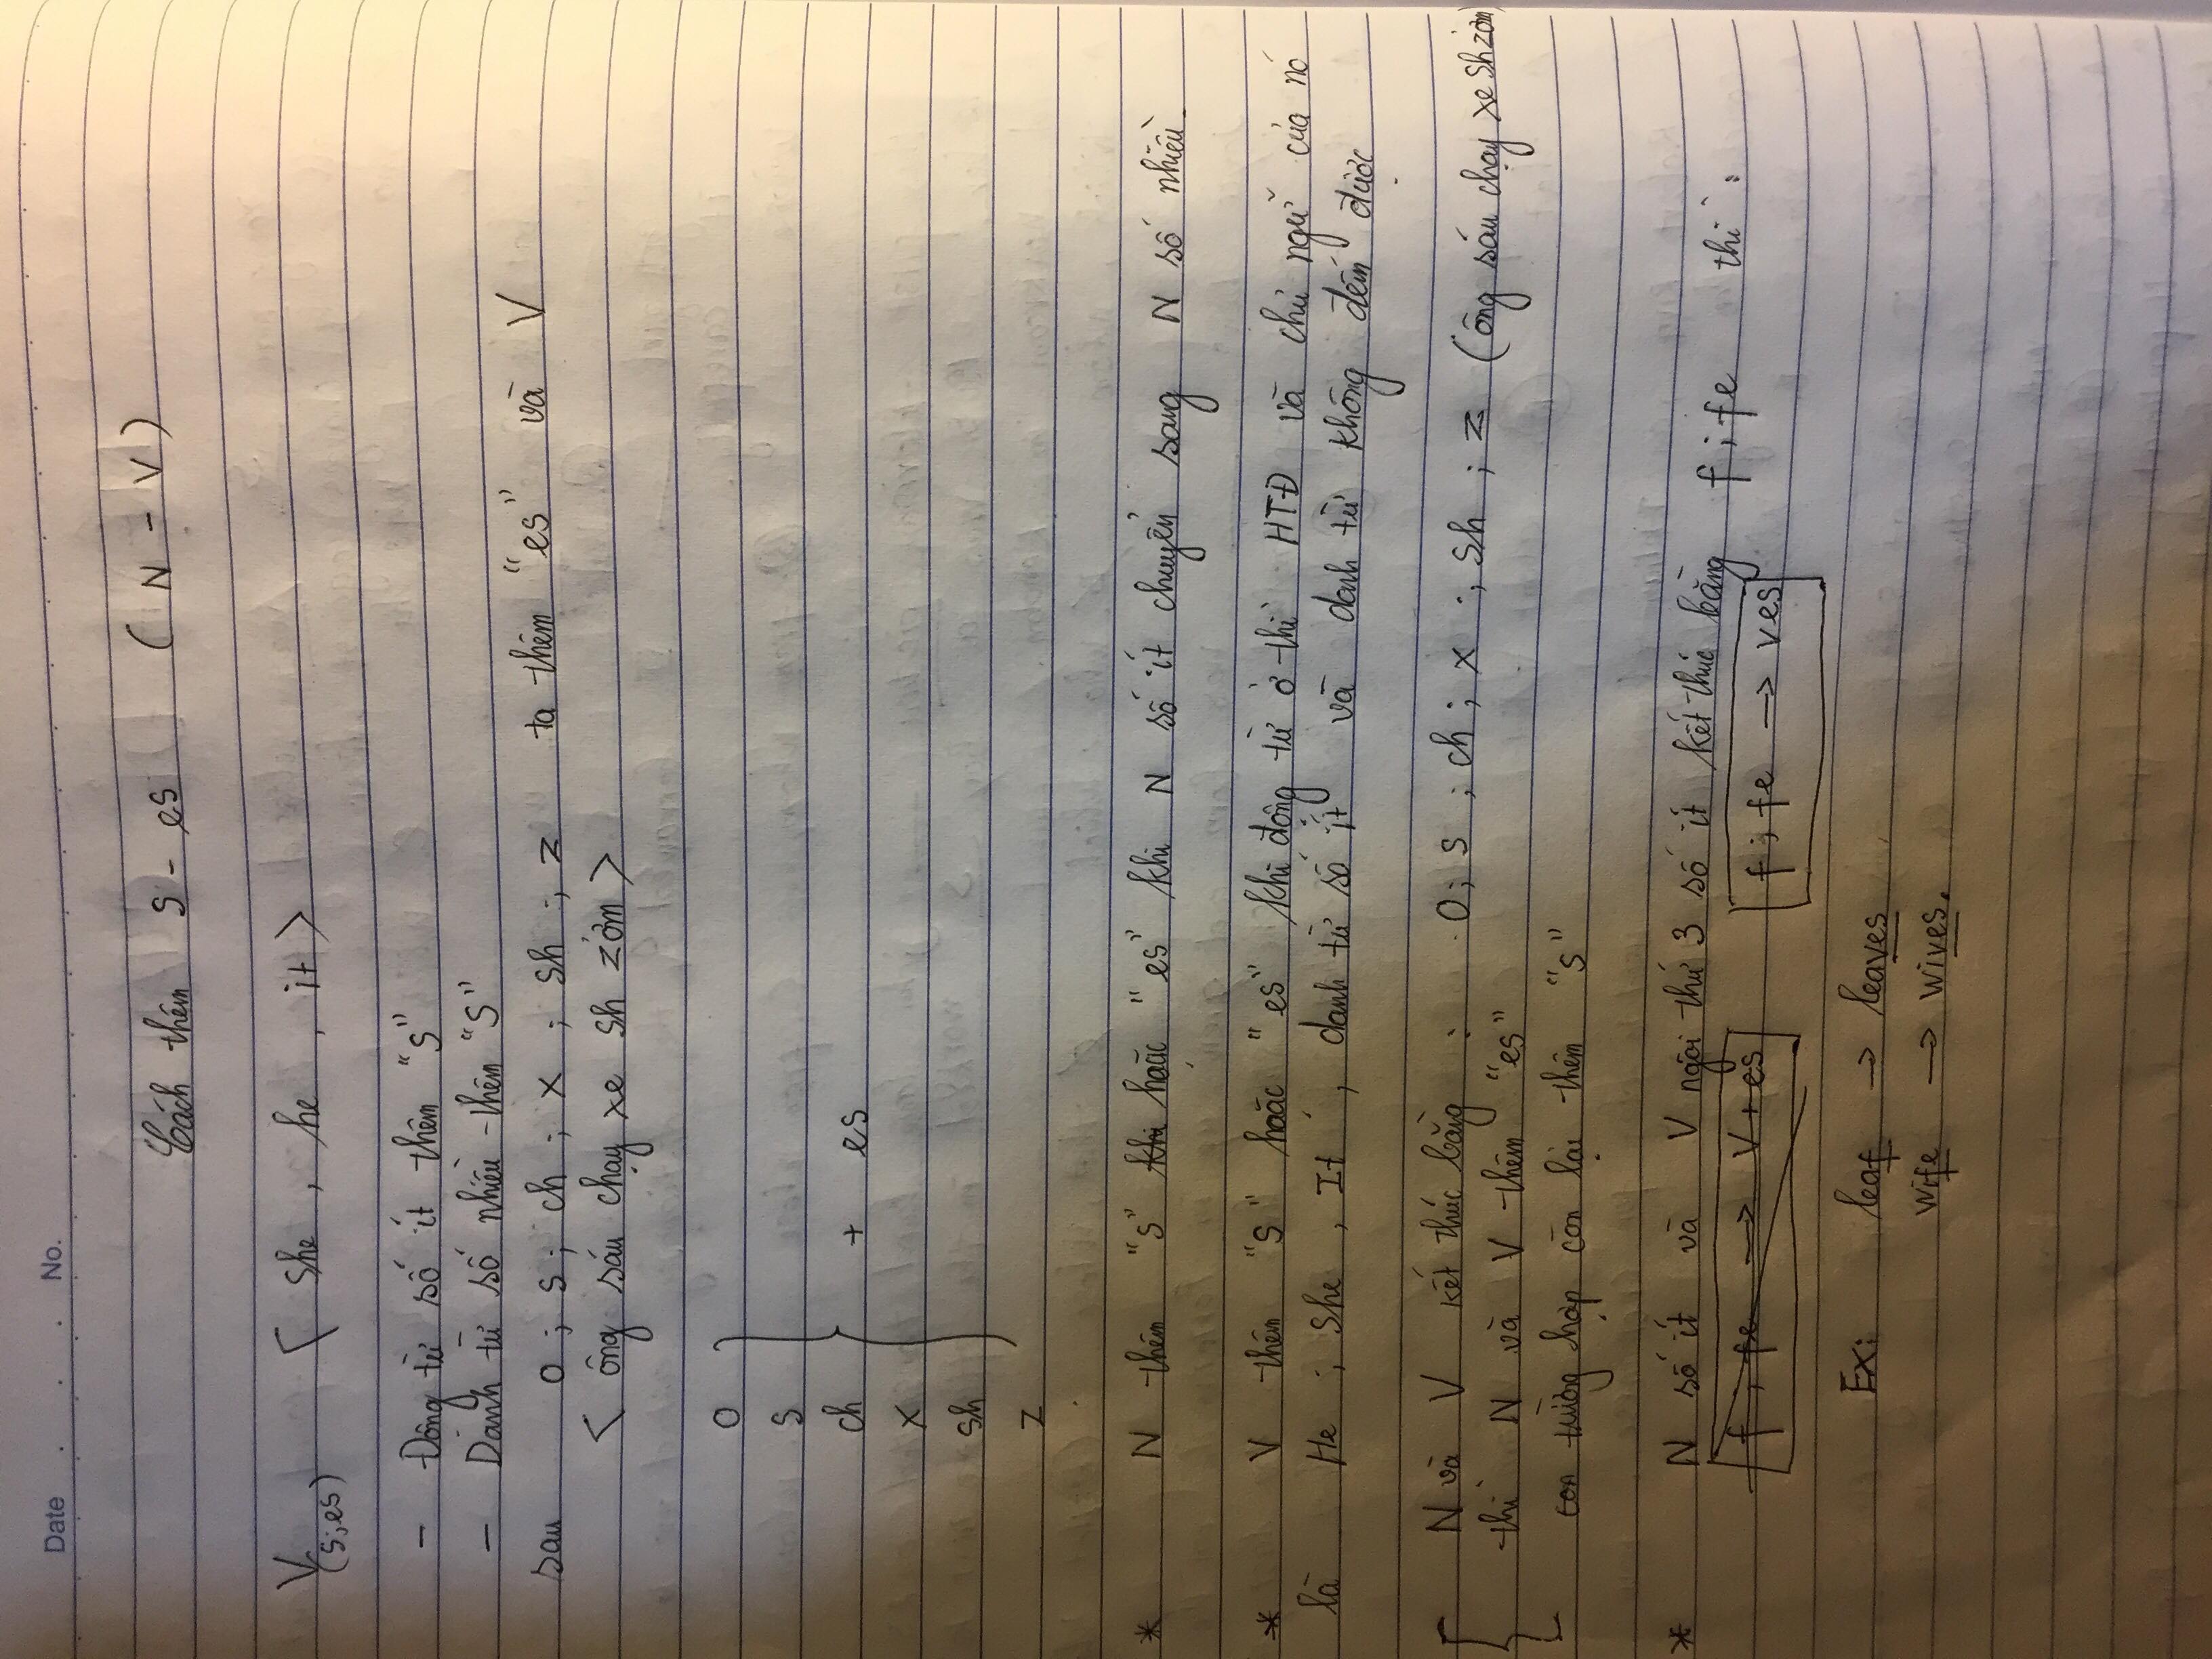 Date . . . No.
Cách thêm s - es (N - V)
V(s;es) < she, he, it >
- Động từ số ít thêm "s"
- Danh từ số nhiều thêm "s"
sau o; s; ch; x; sh; z ta thêm "es" và V
< ông sáu chạy xe sh zỏm >
o
s
ch + es
x
sh
z
* N thêm "s" khi hoặc "es" khi N số ít chuyển sang N số nhiều.
* V thêm "s" hoặc "es" khi động từ ở thì HTĐ và chủ ngữ của nó
là He; She, It, danh từ số ít và danh từ không đếm được.
N và V kết thúc bằng: o; s; ch; x; sh; z (ông sáu chạy xe sh zỏm)
thì N và V thêm "es"
con trường hợp còn lại thêm "s"
* N số ít và V ngôi thứ 3 số ít kết thúc bằng f; fe thì:
f, fe → V + es f; fe → ves
Ex: leaf → leaves
wife → wives.